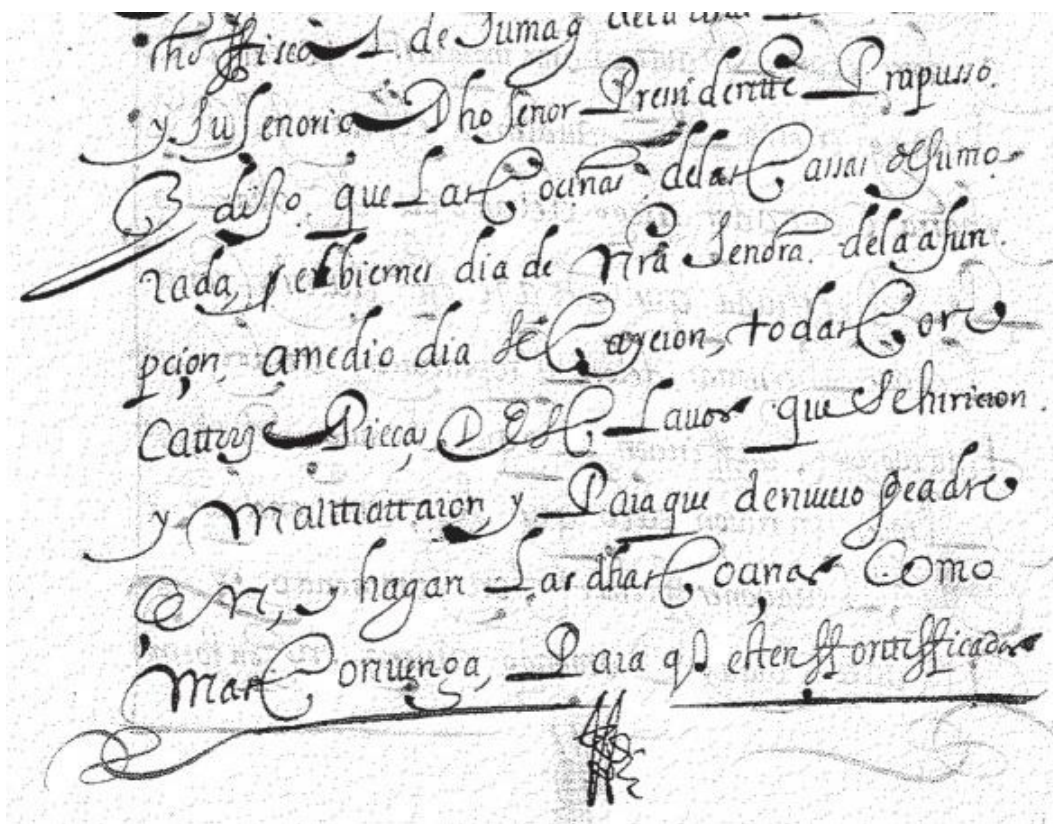 dho ffiscal de su mag
y Su Senoria Dho Senor Pressidentte Propusso
E dixo que Las Cocinas delas Cassas de su mo
rada, y el biernes dia de Nrã Senora dela asun
pcion, a medio dia se Cayeron, todas Con
Cattorze Pieças D Esl Lauor que Se hirieron
y Malttrattaron, y Para que de nueuo se adre
cen, y hagan Las dhas Cocinas Como
Mas Conuenga, Para q esten ffortifficadas